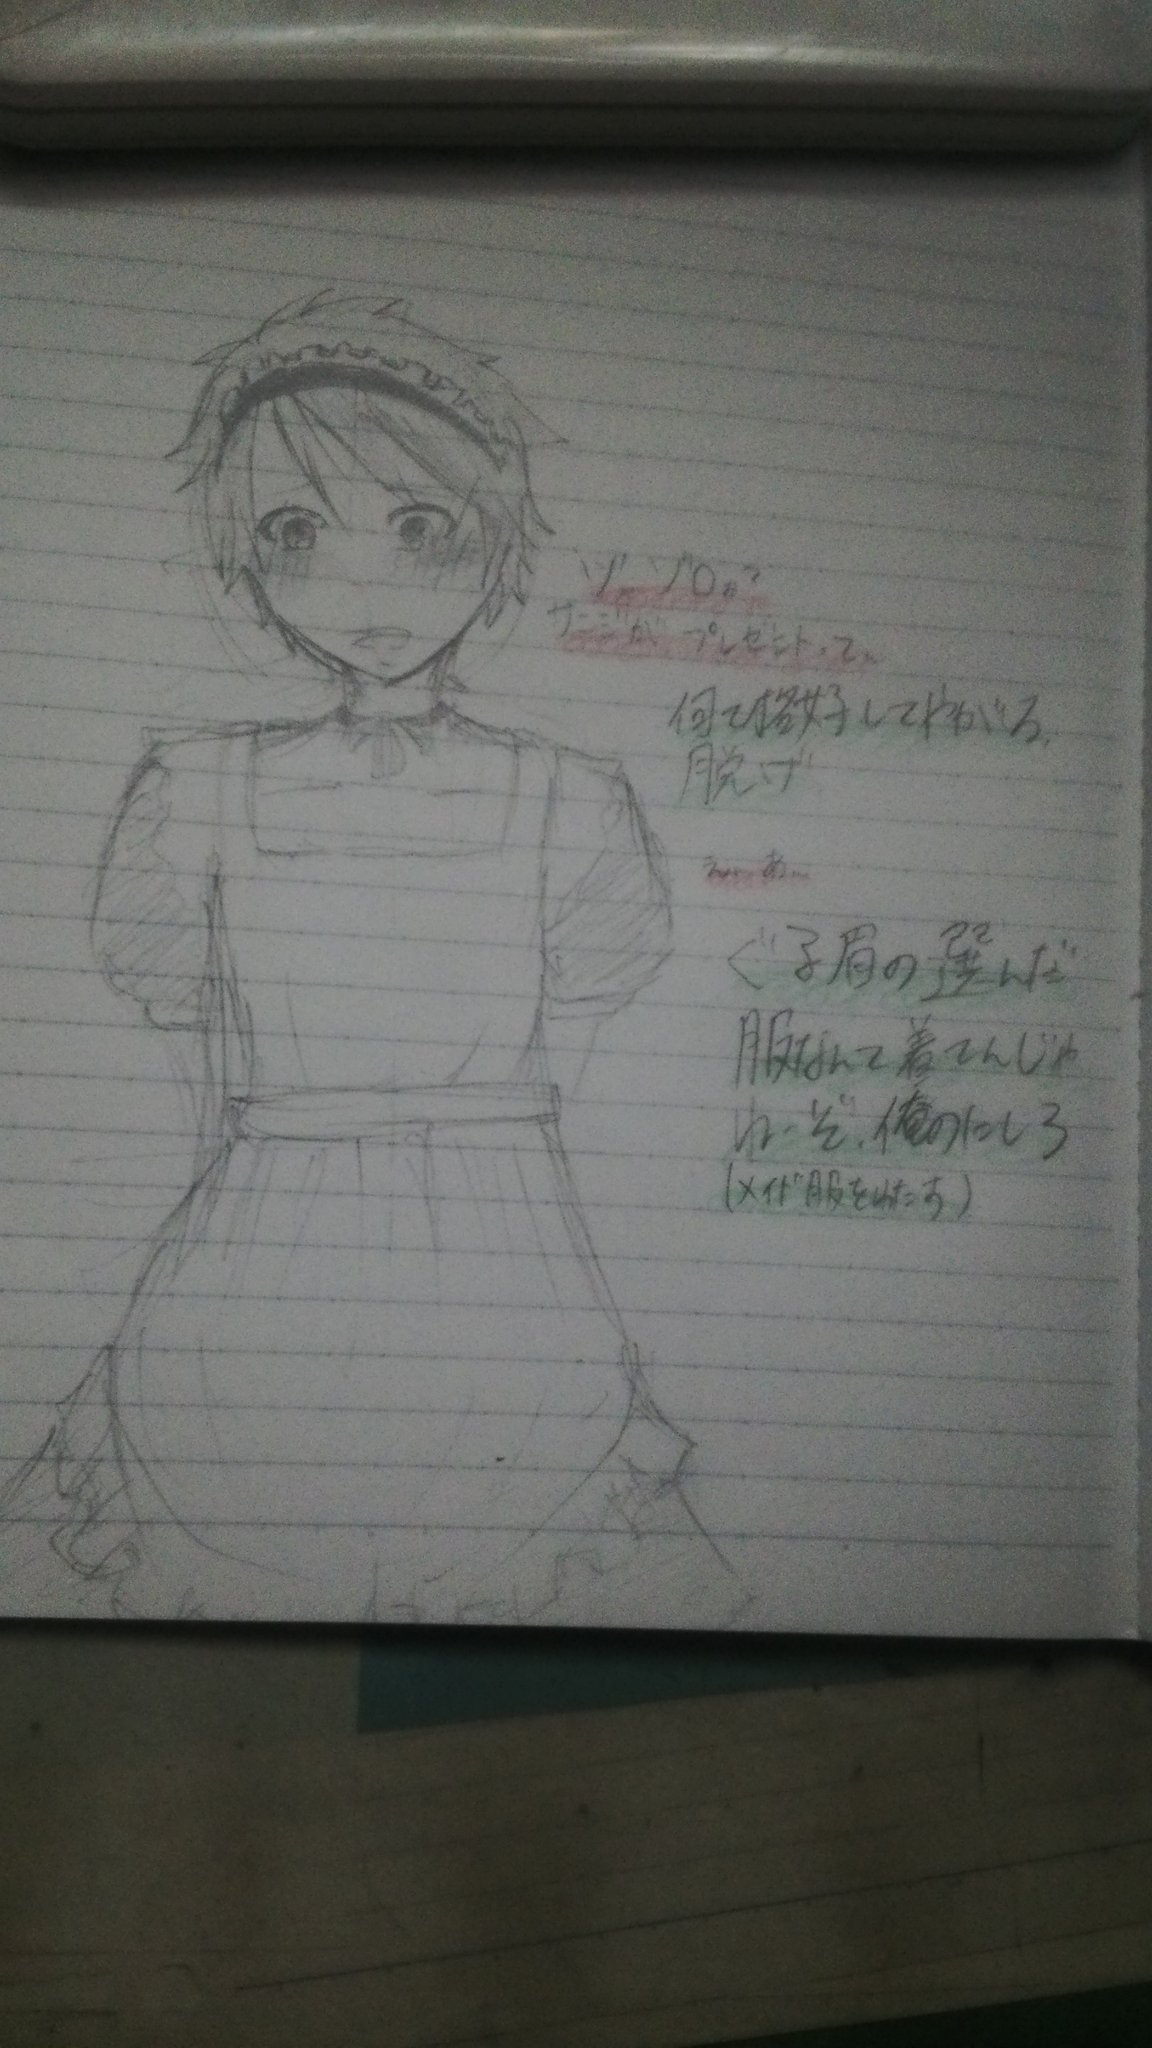 ゾ、ゾロ…？
サンジが、プレゼントって…
何て格好してやがる、
脱げ
え…あ…
ぐる眉の選んだ
服なんて着てんじゃ
ねーぞ、俺のにしろ
(メイド服をわたす)